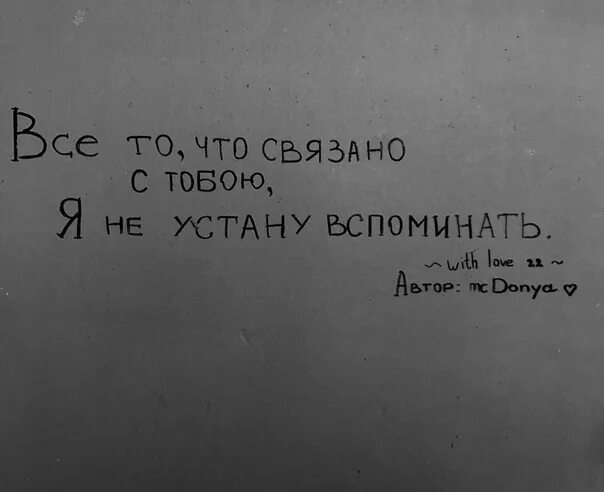 Все то, что связано
с тобою,
Я не устану вспоминать.
~ with love 22 ~
Автор: mc Donya ♡